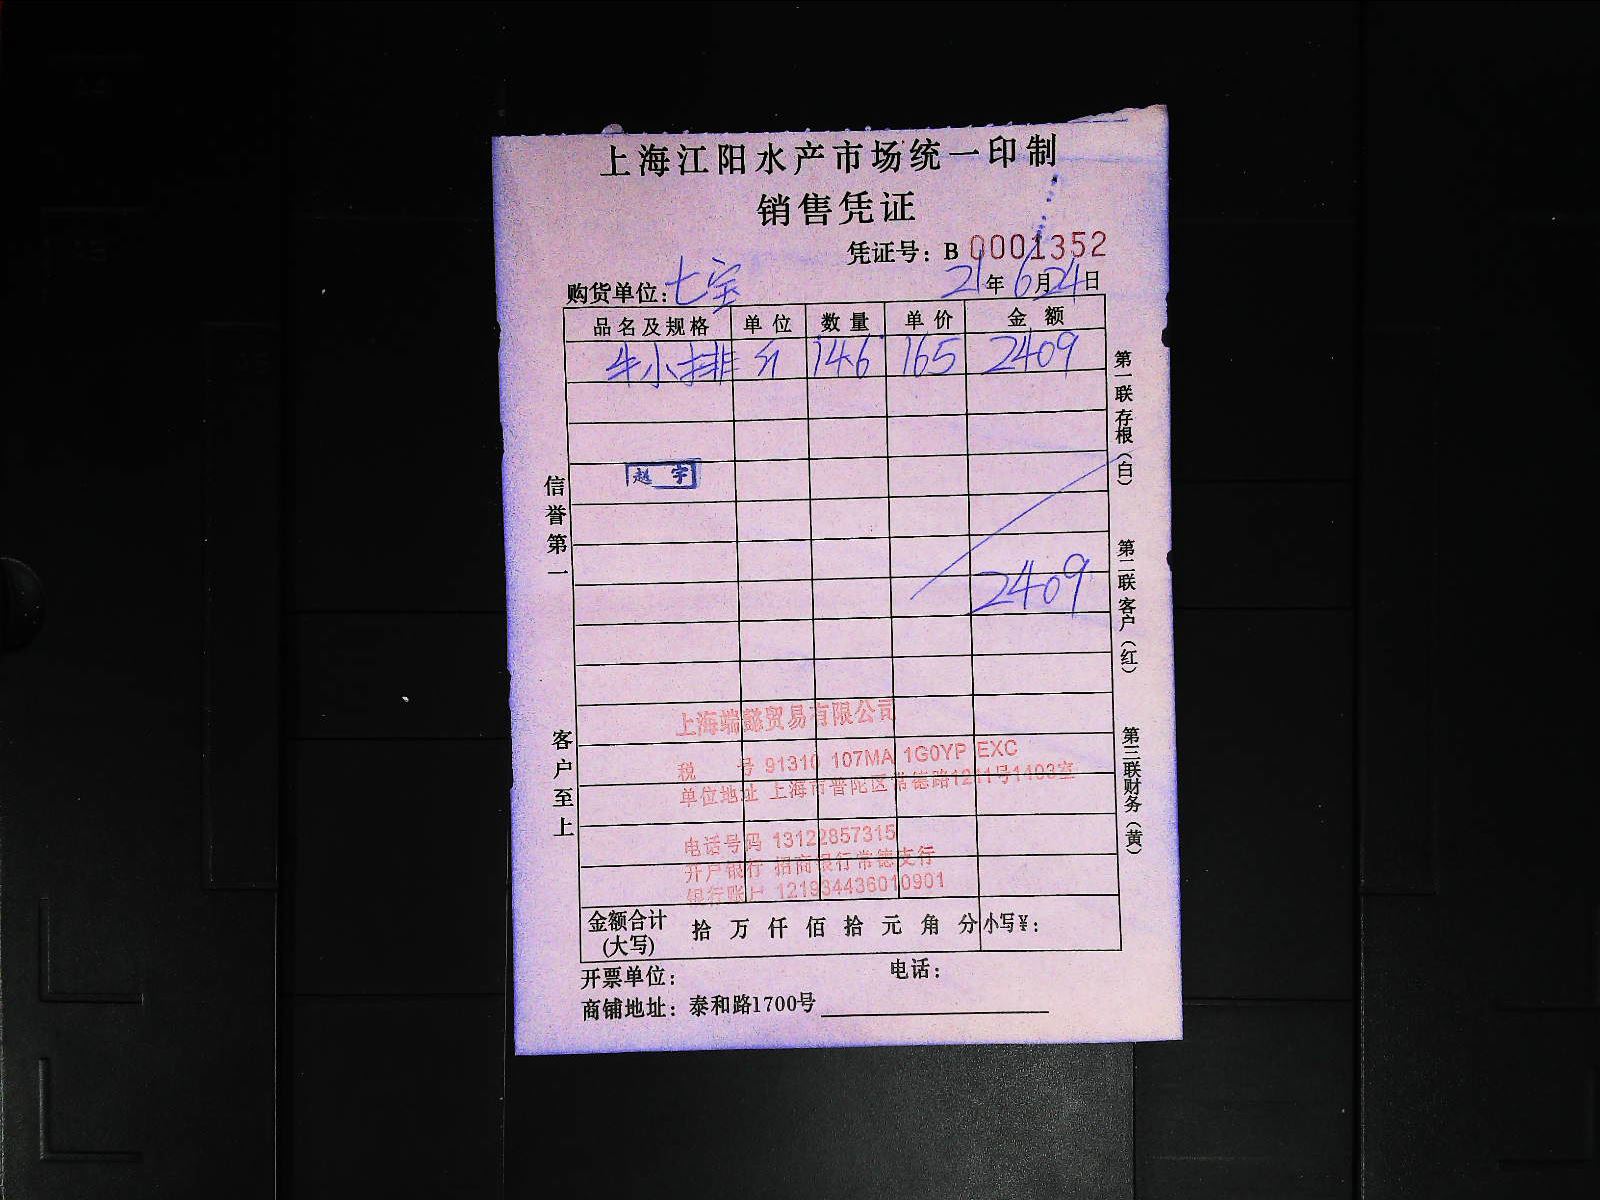 上海江阳水产市场统一印制
销售凭证
凭证号：B 0001352
购货单位：七宝 21年6月24日
品名及规格 单位 数量 单价 金额
牛小排 斤 14.6 165 2409
赵宇
2409
信誉第一
客户至上
第一联存根（白）
第二联客户（红）
第三联财务（黄）
上海端懿贸易有限公司
税 号 91310 107MA 1G0YP EXC
单位地址 上海市普陀区常德路1211号1103室
电话号码 13122857315
开户银行 招商银行常德支行
银行账户 121934436010901
金额合计(大写) 拾 万 仟 佰 拾 元 角 分 小写¥：
开票单位： 电话：
商铺地址：泰和路1700号